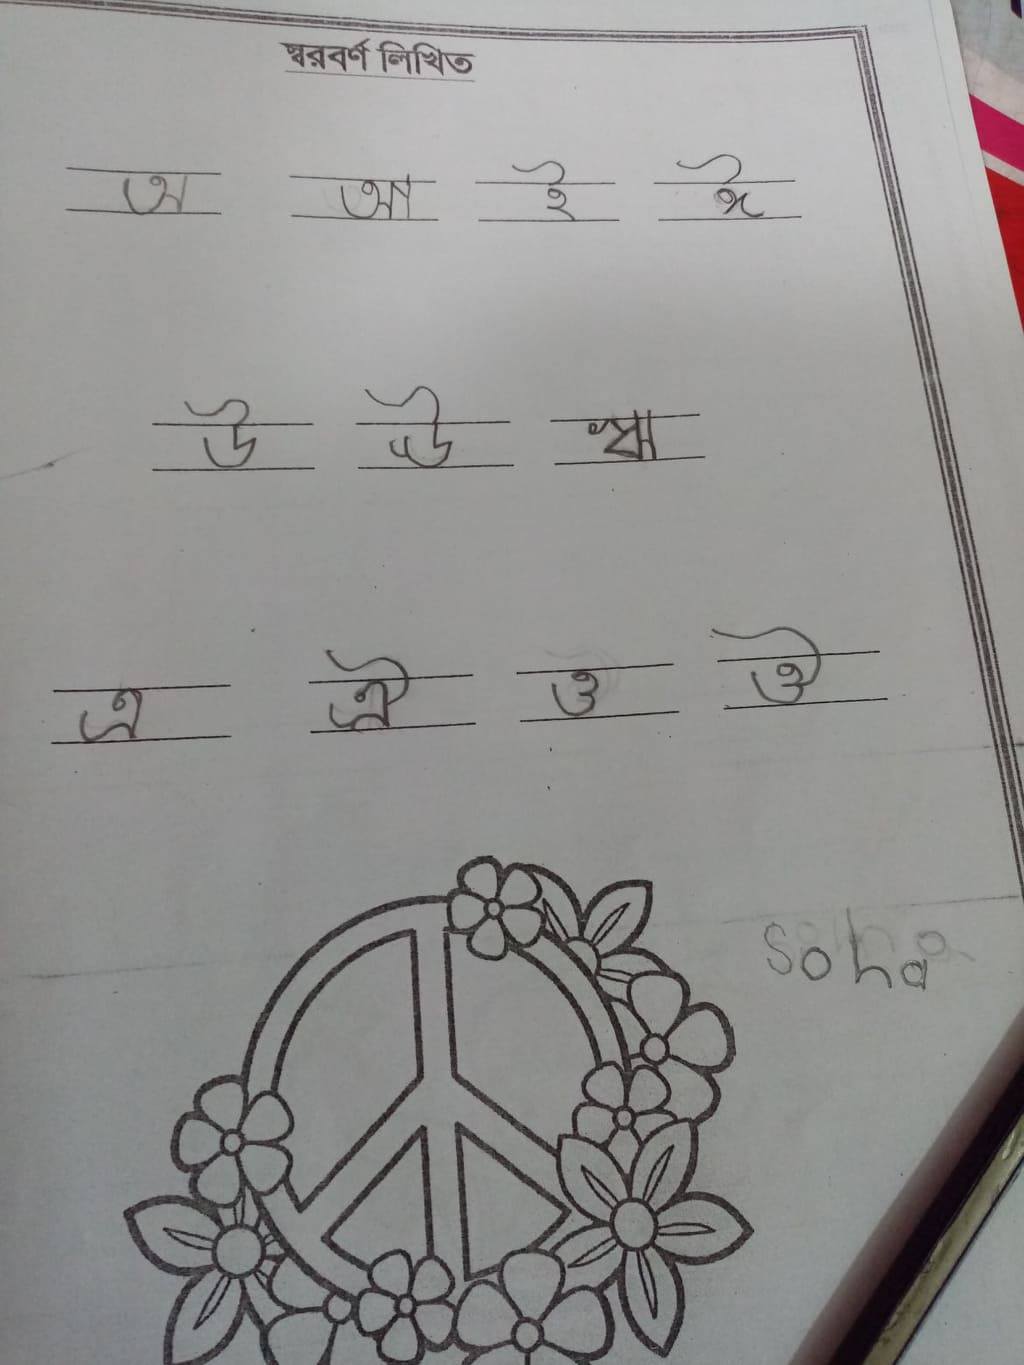 স্বরবর্ণ লিখিত
অ আ ই ঈ
উ ঊ ঋ
এ ঐ ও ঔ
Soha